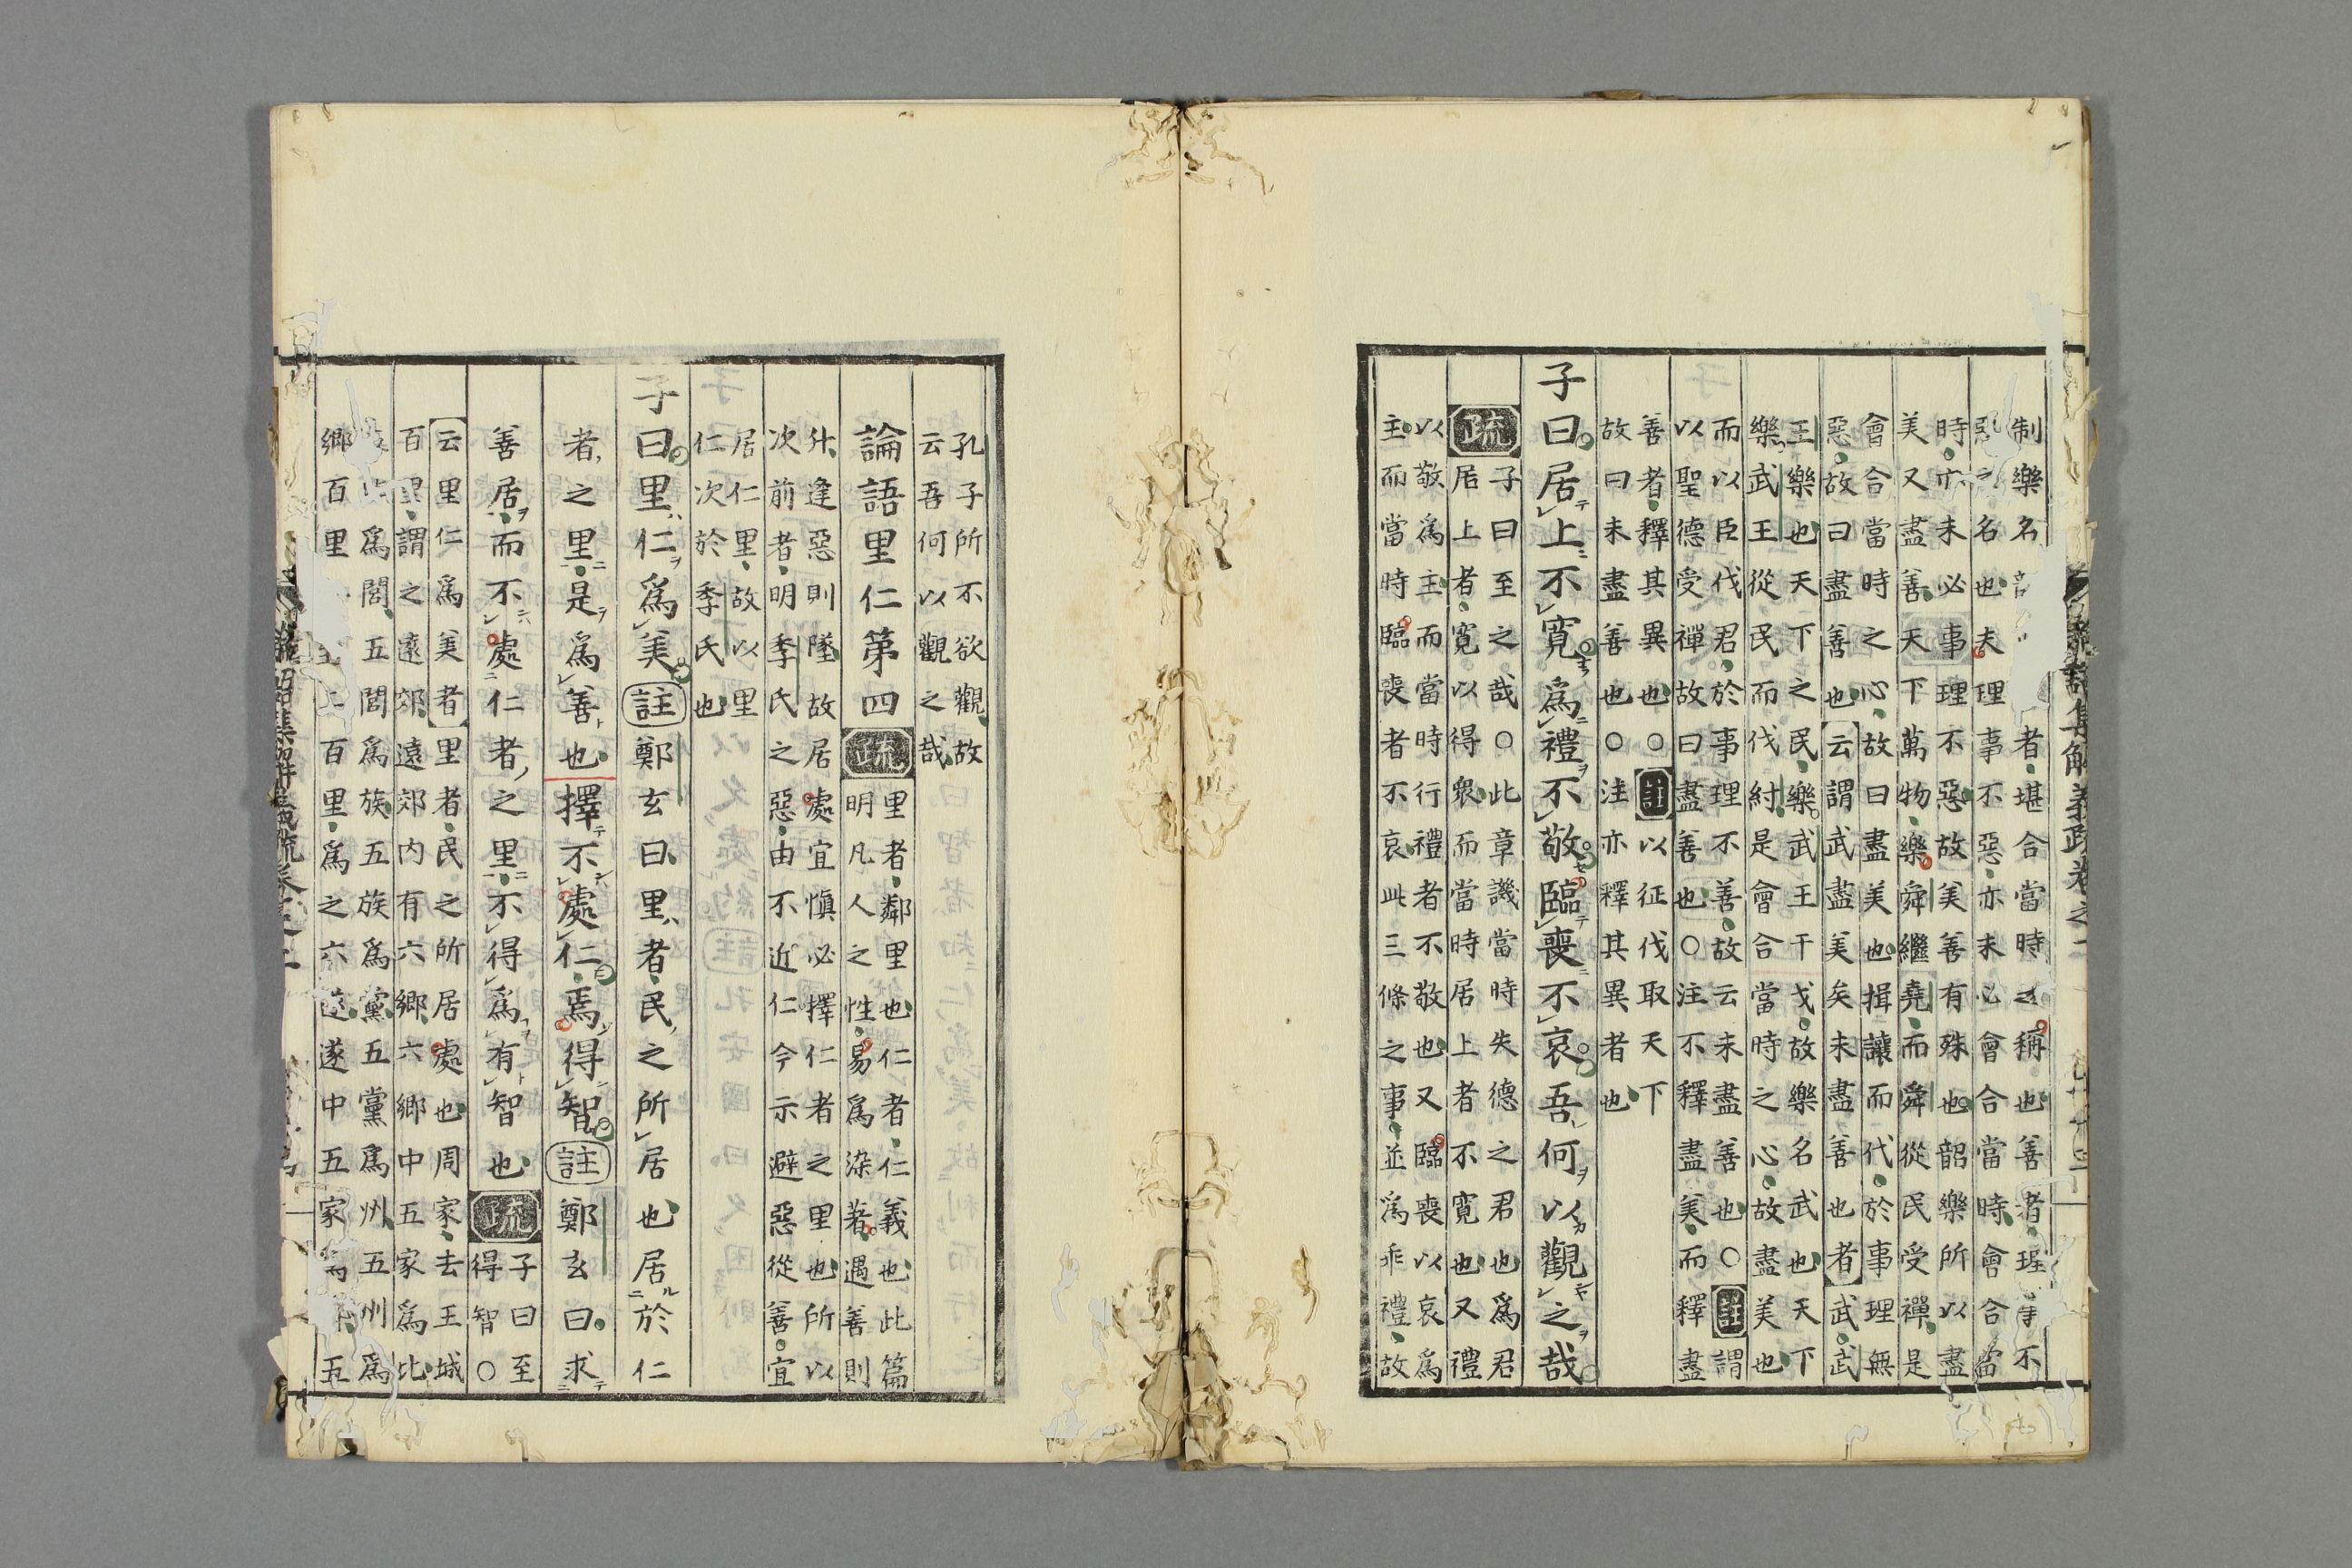 制樂名者堪合當時之稱也善者理事不
惡之名也夫理事不惡亦未必會合當時會合當
時亦未必事理不惡故美善有殊也韶樂所以盡
美又盡善天下萬物樂舜繼堯而舜從民受禪是
會合當時之心故曰盡美也揖讓而代於事理無
惡故曰盡善也云謂武盡美矣未盡善也者武武
王樂也天下之民樂武王干戈故樂名武也天下
樂武王從民而伐紂是會合當時之心故盡美也
而以臣伐君於事理不善故云未盡善也○註謂
以聖德受禪故曰盡善也○注不釋盡美而釋盡
善者釋其異也○註以征伐取天下
故曰未盡善也○注亦釋其異者也
子曰居上不寛爲禮不敬臨喪不哀吾何以觀之哉
疏子曰至之哉○此章譏當時失德之君也爲君
居上者寛以得衆而當時居上者不寛也又禮
以敬爲主而當時行禮者不敬也又臨喪以哀爲
主而當時臨喪者不哀此三條之事並爲乖禮故
孔子所不欲觀故
云吾何以觀之哉
論語里仁第四疏里者鄰里也仁者仁義也此篇
明凡人之性易爲染著遇善則
升逢惡則墜故居處宜愼必擇仁者之里也所以
次前者明季氏之惡由不近仁今示避惡從善宜
居仁里故以里
仁次於季氏也
子曰里仁爲美註鄭玄曰里者民之所居也居於仁
者之里是爲善也擇不處仁焉得智註鄭玄曰求
善居而不處仁者之里不得爲有智也疏子曰至
得智○
云里仁爲美者里者民之所居處也周家去王城
百里謂之遠郊遠郊内有六鄉六鄉中五家爲比
爲閭五閭爲族五族爲黨五黨爲州五州爲
鄉百里百里爲之六遂遂中五家爲五